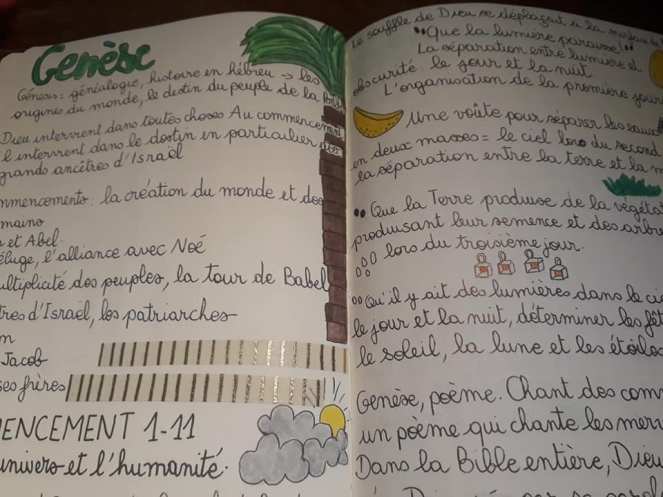 Genèse
Génesis: généalogie, histoire en hébreu → les
origines du monde, le destin du peuple de la
Dieu intervient dans toutes choses Au commencement
Il intervient dans le destin en particulier des
grands ancêtres d'Israël
: la création du monde et des
et Abel.
l'alliance avec Noé
des peuples, la tour de Babel
d'Israël, les patriarches
Jacob
ses frères
1-11
univers et l'humanité.
Le souffle de Dieu se déplaçait à la
"Que la lumière paraisse!"
La séparation entre lumière et
obscurité le jour et la nuit.
L'organisation de la première
Une voûte pour séparer les eaux
en deux masses = le ciel lors du second
la séparation entre la terre et la
"Que la Terre produise de la
produisant leur semence et des
lors du troisième jour.
"Qu'il y ait des lumières dans le
le jour et la nuit, déterminer les
le soleil, la lune et les étoiles
Genèse, poème. Chant des
un poème qui chante les
Dans la Bible entière, Dieu